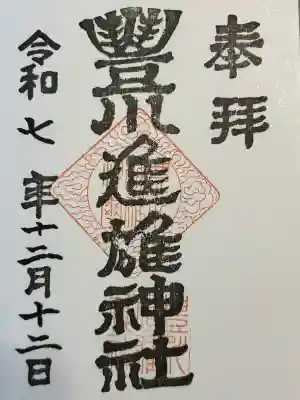 奉拝
豐川進雄神社
令和七年十二月十二日